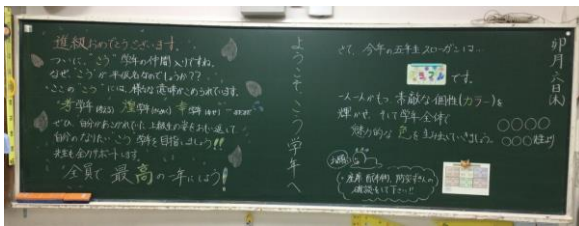 進級おめでとうございます。
ついに、"こう"学年の仲間入りですね。
なぜ"こう"が平仮名なのでしょうか??
・ここの"こう"には、様々な意味がこめられています。
考学年(考える)
学年
幸学年(幸せ)
ぜひ、自分があこがれていた上級生の姿をおもい返して
自分のなりたい"こう"学年を目指しましょう!!
先生も全力サポートします。
全員で最高の一年にしよう!!
ようこそ、こう学年へ
さて、今年の五年生スローガンは…
です。
一人一人がもつ、素敵な個性(カラー)を
輝かせ、そして学年全体で
魅力的な色を生み出していきましょう。
卯月六日(木)
○○○○
○○○先生より
お願い
・座席、配布物、防災ずきんの
確認をして下さい!!